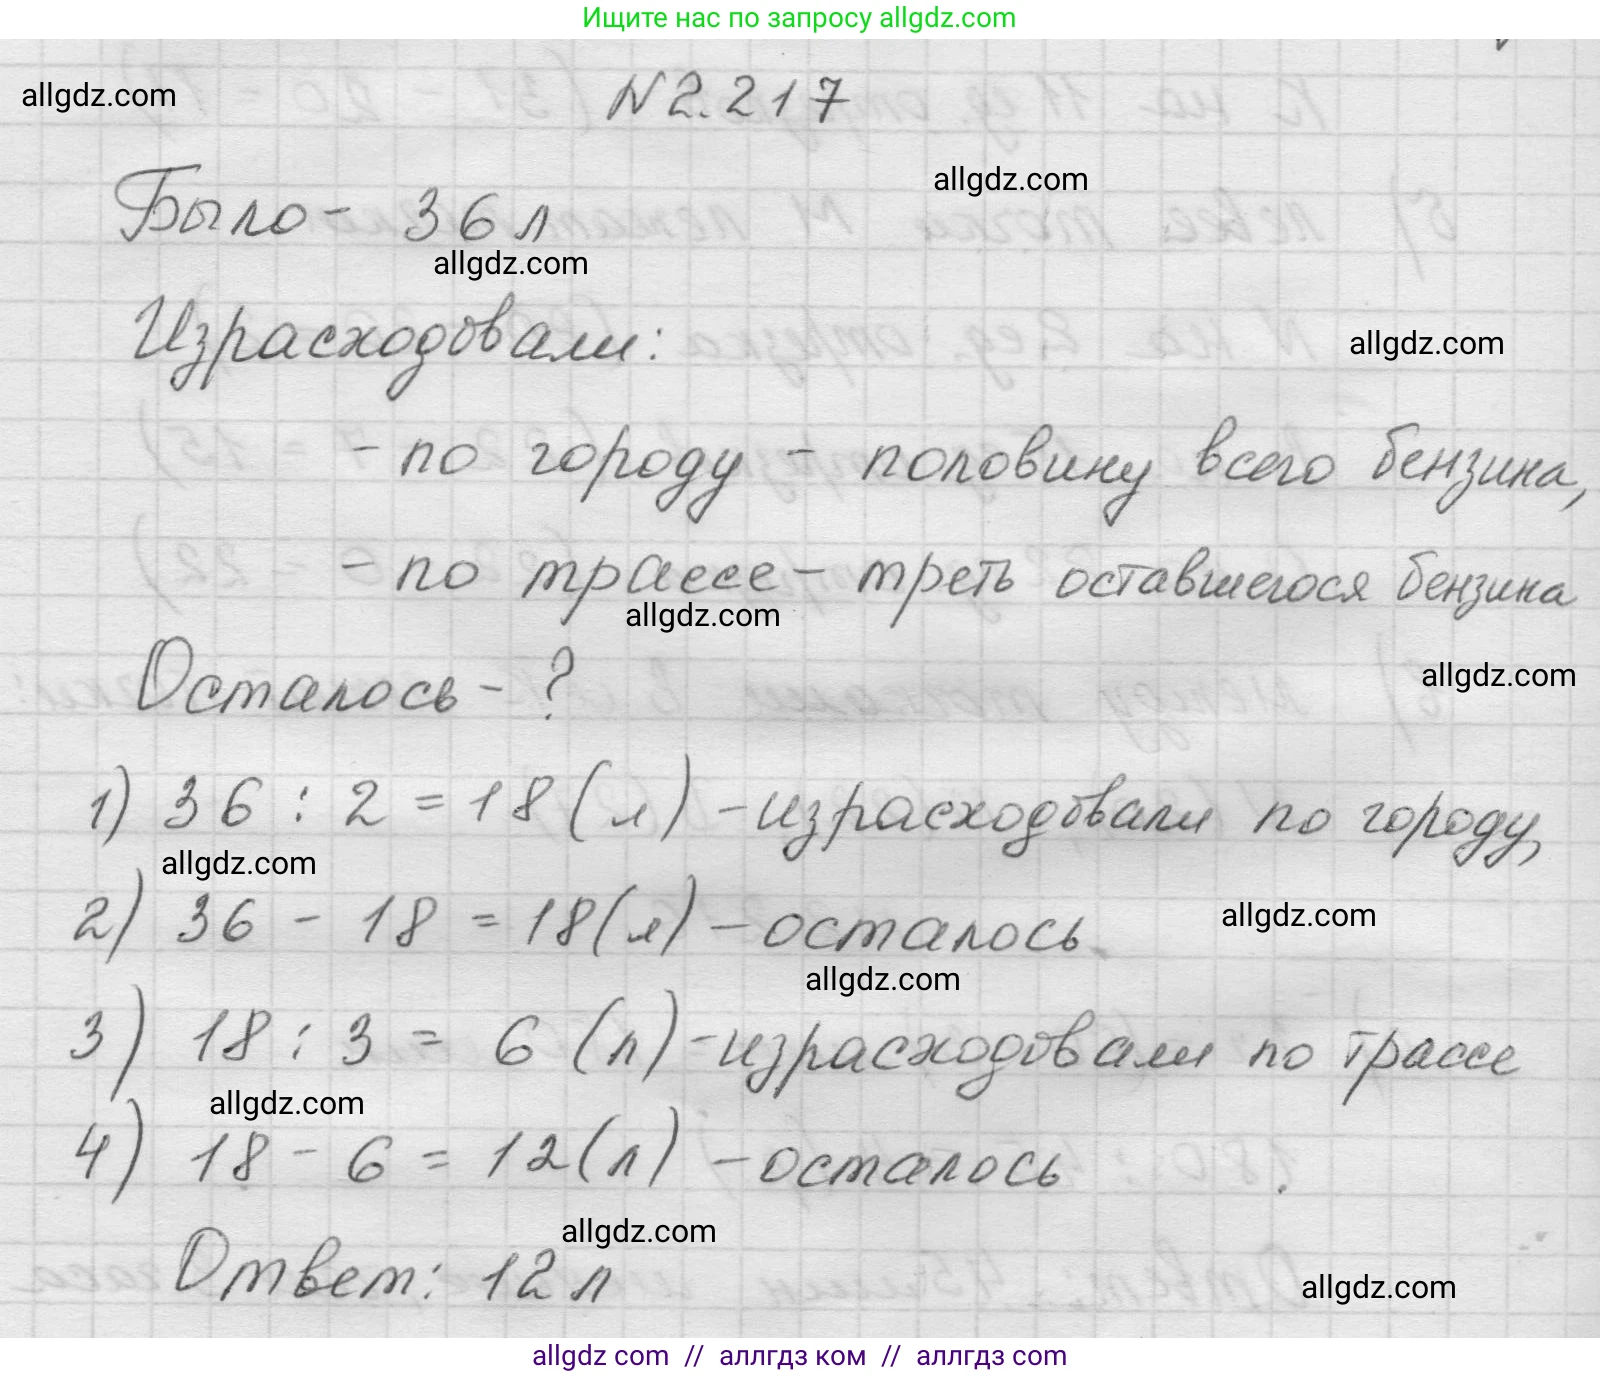 Ищите нас по запросу allgdz.com
allgdz.com
N 2.217
allgdz.com
Было - 36 л
allgdz.com
Израсходовали:
allgdz.com
- по городу - половину всего бензина,
- по трассе - треть оставшегося бензина
allgdz.com
Осталось - ?
allgdz.com
1) 36 : 2 = 18 (л) - израсходовали по городу,
allgdz.com
2) 36 - 18 = 18 (л) - осталось.
allgdz.com
allgdz.com
3) 18 : 3 = 6 (л) - израсходовали по трассе
allgdz.com
4) 18 - 6 = 12 (л) - осталось
allgdz.com
Ответ: 12 л
allgdz.com
allgdz com // аллгдз ком // аллгдз com